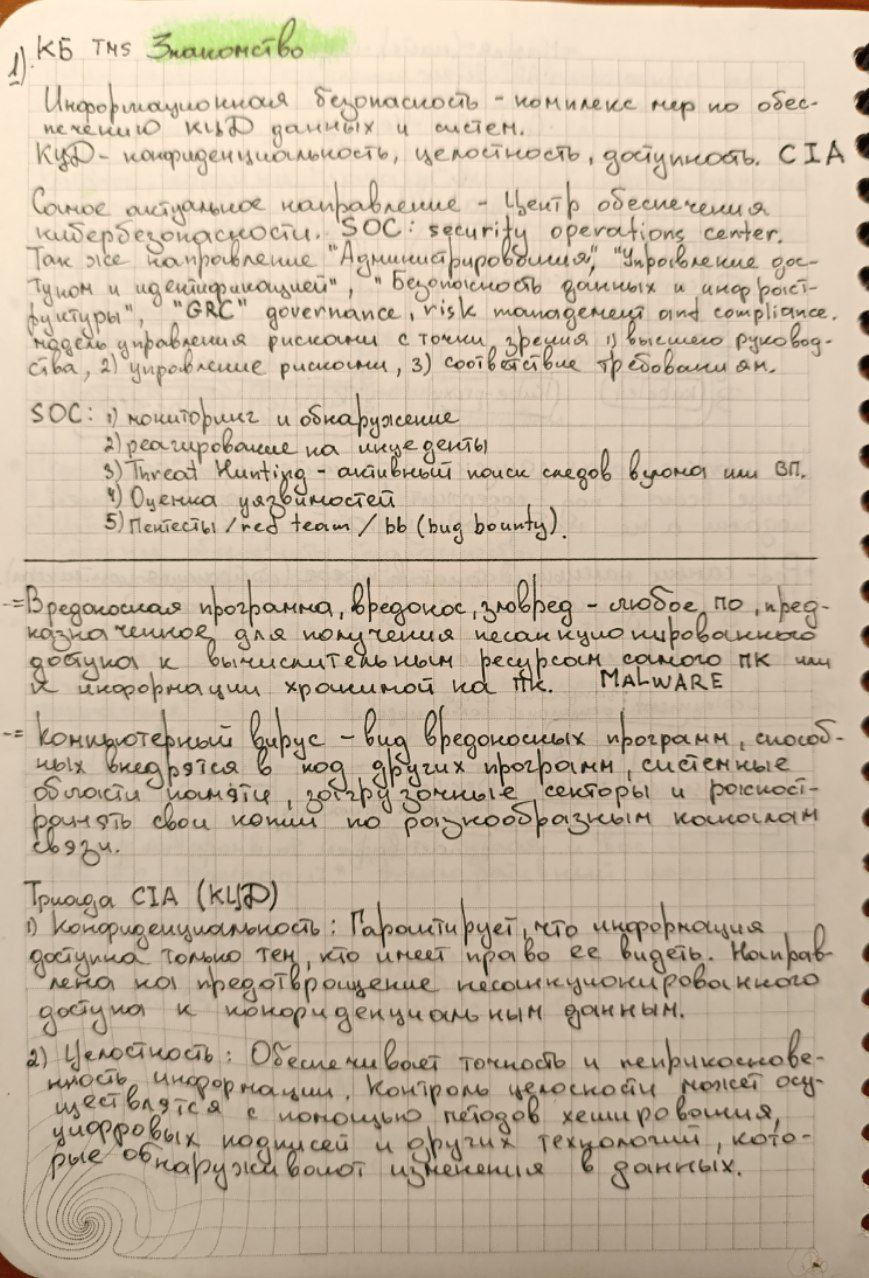 1). КБ TMS Знакомство
Информационная безопасность - комплекс мер по обес-
печению КЦД данных и систем.
КЦД - конфиденциальность, целостность, доступность. CIA
Самое актуальное направление - Центр обеспечения
кибербезопасности. SOC: security operations center.
Так же направление "Администрирования", "Управление дос-
тупом и идентификацией", "Безопасность данных и инфраст-
руктуры", "GRC" governance, risk management and compliance.
модель управления рисками с точки зрения 1) высшего руковод-
ства, 2) управление рисками, 3) соответствие требованиям.
SOC: 1) мониторинг и обнаружение
2) реагирование на инциденты
3) Threat Hunting - активный поиск следов взлома или ВП.
4) Оценка уязвимостей
5) Пентесты / red team / bb (bug bounty).
-= Вредоносная программа, вредонос, зловред - любое ПО, пред-
назначенное для получения несанкционированного
доступа к вычислительным ресурсам самого ПК или
к информации хранимой на ПК. MALWARE
-= Компьютерный вирус - вид вредоносных программ, способ-
ных внедрятся в код других программ, системные
области памяти, загрузочные секторы и распост-
ранять свои копии по разнообразным каналам
связи.
Триада CIA (КЦД)
1) Конфиденциальность: Гарантирует, что информация
доступна только тем, кто имеет право ее видеть. Направ-
лена на предотвращение несанкционированного
доступа к конфиденциальным данным.
2) Целостность: Обеспечивает точность и неприкоснове-
нность информации. Контроль целосности может осу-
ществлятся с помощью методов хеширования,
цифровых подписей и других технологий, кото-
рые обнаруживают изменения в данных.